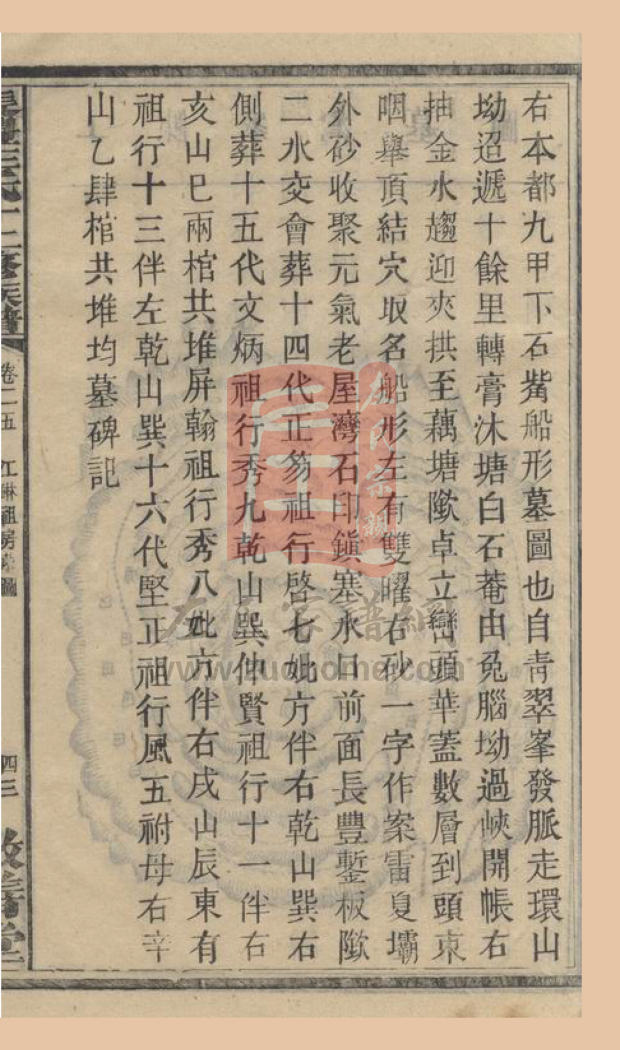 右本都九甲下石觜船形墓圖也自青翠峯發脈走環山
坳迢遞十餘里轉膏沐塘白石菴由兔腦坳過峽開帳右
抽金水趨迎夾拱至藕塘隞卓立巒頭華蓋數層到頭束
咽舉頂結穴取名船形左有雙曜右砂一字作案雷夏壩
外砂收聚元氣老屋灣石印鎮塞水口前面長豐鏨板隞
二水交會葬十四代正笏祖行啓七妣方伴右乾山巽右
側葬十五代文炳祖行秀九乾山巽仲賢祖行十一伴右
亥山巳兩棺共堆屏翰祖行秀八妣方伴右戌山辰東有
祖行十三伴左乾山巽十六代堅正祖行風五祔母右辛
山乙肆棺共堆均墓碑記
卷二五
祖房
四三
www.zuohome.com